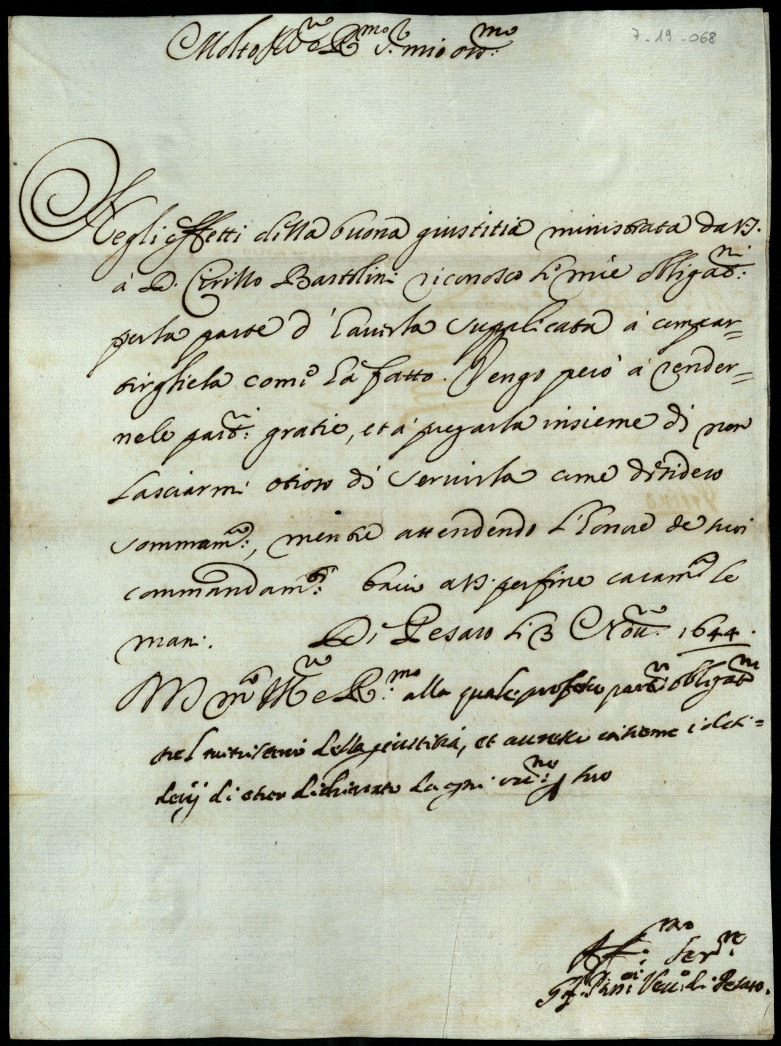 7-19-068
Molto Ill.re e R.mo S.r mio oss.mo
Negli effetti della buona giustitia ministrata da V.S.
à D. Cirillo Bartolini riconosco li mie obligat.ni
per la parte d'hauerla supplicata à compar=
tirgliela com'hà fatto. Vengo però à render=
nele part.ri gratie, et à pregarla insieme di non
lasciarmi otioso di servirla come desidero
sommam.te, mentre attendendo l'honore de suoi
commandam.ti bacio à V.S. per fine caram.te le
mani. Di Pesaro li 3 Nou.re 1644.
V.S. molto Ill.re e R.mo alla quale professo part.re obligat.ne
nel ministerio della giustitia, et insieme i desi=
derij di esser dichiarato da ogni suo
Aff.mo Ser.re
Vesc.o di Pesaro.